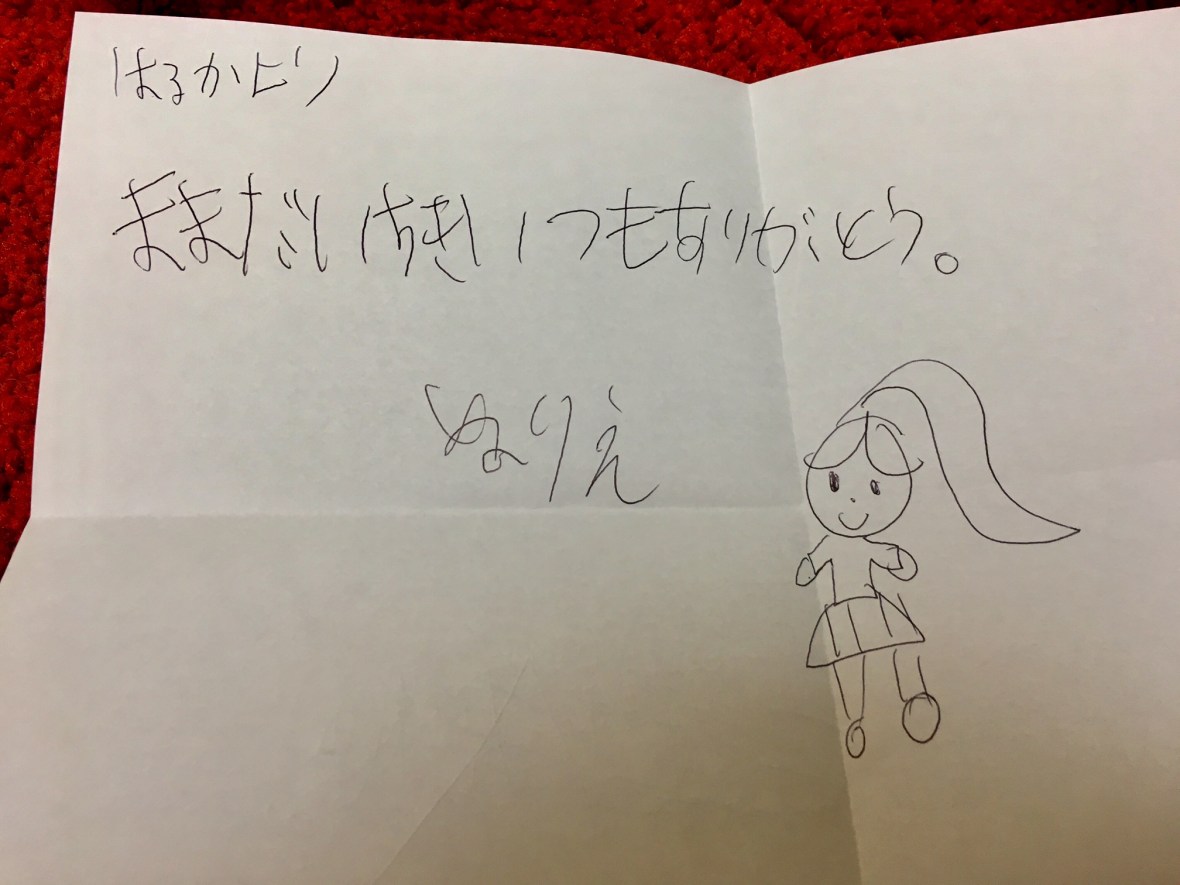 はるかより
ままだいすきいつもありがとう。
ぬりえ